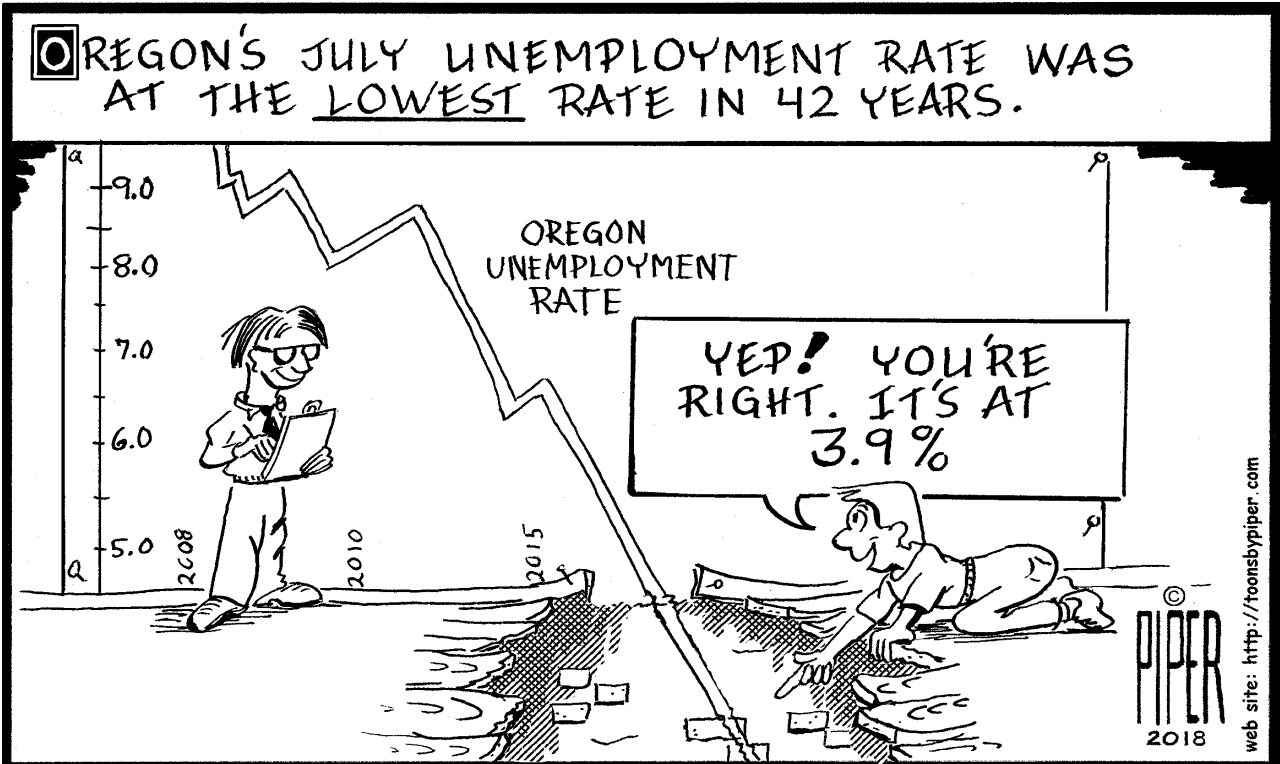 OREGON'S JULY UNEMPLOYMENT RATE WAS
AT THE LOWEST RATE IN 42 YEARS.
9.0
8.0
7.0
6.0
5.0
2008
2010
2015
OREGON
UNEMPLOYMENT
RATE
YEP! YOU'RE
RIGHT. IT'S AT
3.9%
©
PIPER
2018
web site: http://toonsbypiper.com